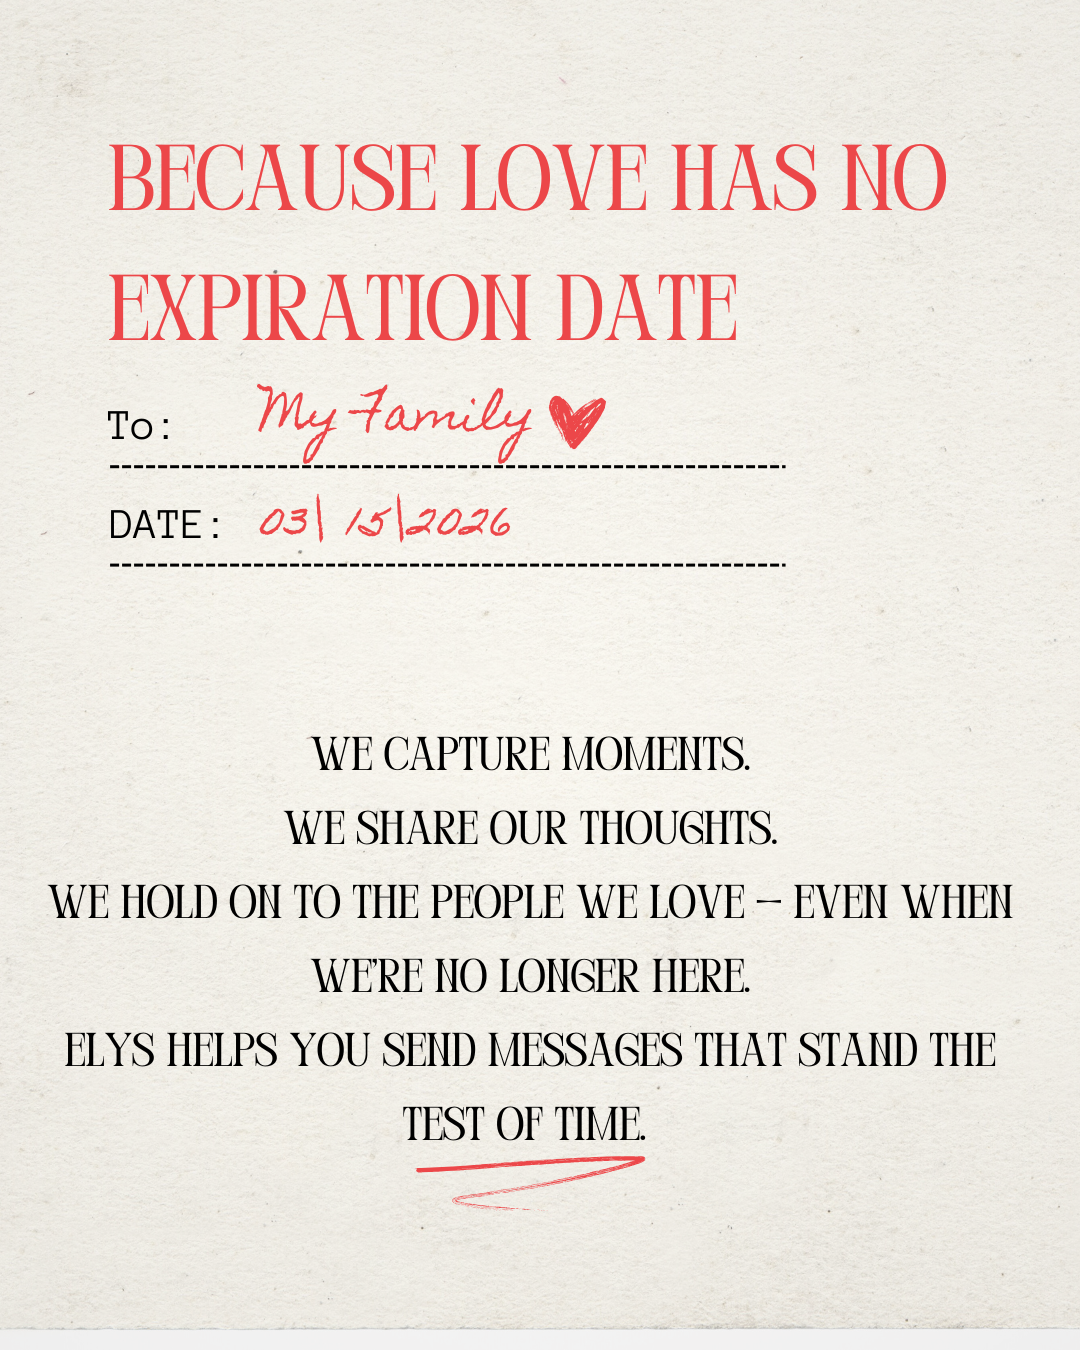 BECAUSE LOVE HAS NO
EXPIRATION DATE
To: My Family
DATE: 03| 15|2026
WE CAPTURE MOMENTS.
WE SHARE OUR THOUGHTS.
WE HOLD ON TO THE PEOPLE WE LOVE – EVEN WHEN
WE'RE NO LONGER HERE.
ELYS HELPS YOU SEND MESSAGES THAT STAND THE
TEST OF TIME.